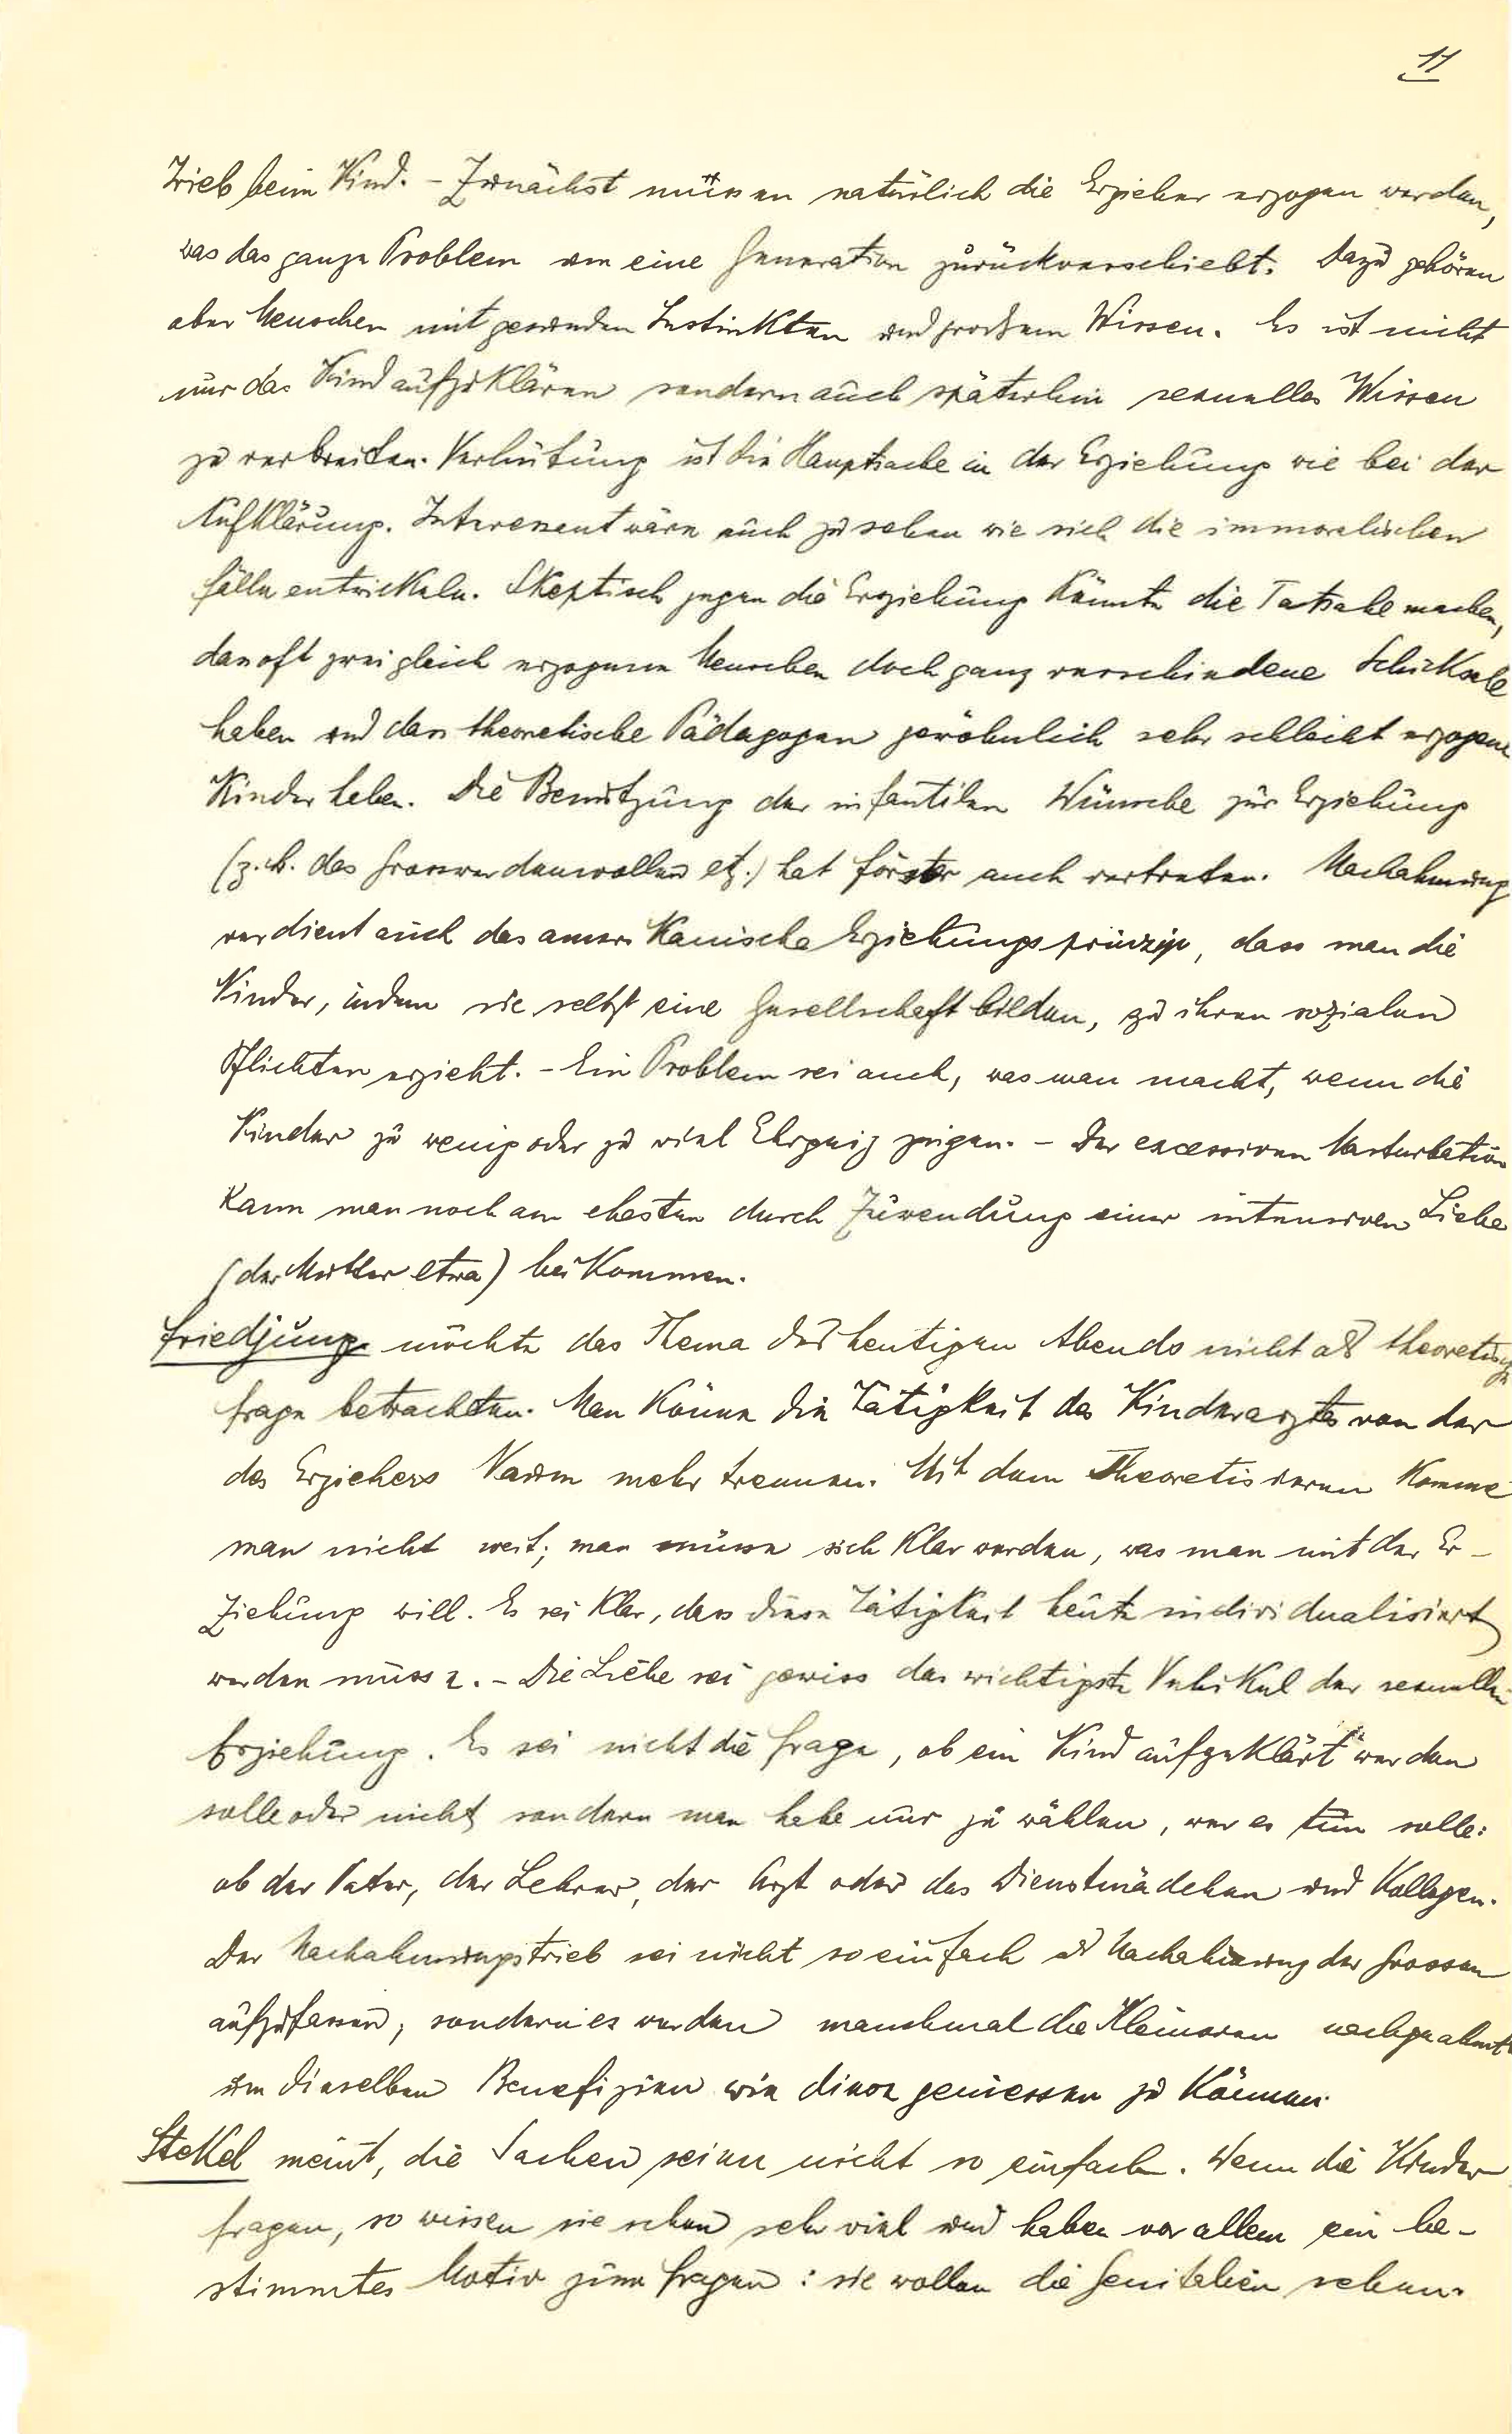 11
Trieb beim Kind. – Zunächst müssen natürlich die Erzieher erzogen werden,
was das ganze Problem um eine Generation zurückverschiebt. Dazu gehören
aber Menschen mit gesunden Instinkten und grossem Wissen. Es ist nicht
nur das Kind aufzuklären sondern auch späterhin sexuelles Wissen
zu verbreiten. Verhütung ist die Hauptsache in der Erziehung wie bei der
Aufklärung. Interessant wäre auch zu sehen wie sich die immoralischen
Fälle entwickeln. Skeptisch gegen die Erziehung könnte die Tatsache machen,
dass oft zwei gleich erzogene Menschen doch ganz verschiedene Schicksale
haben und dass theoretische Pädagogen gewöhnlich sehr schlecht erzogene
Kinder haben. Die Benützung der infantilen Wünsche zur Erziehung
(z.B. des Grosswerdenwollens etz.) hat Förster auch vertreten. Nachahmung
verdient auch das amerikanische Erziehungsprinzip, dass man die
Kinder, indem sie selbst eine Gesellschaft bilden, zu ihren sozialen
Pflichten erzieht. – Ein Problem sei auch, was man macht, wenn die
Kinder zu wenig oder zu viel Ehrgeiz zeigen. – Der excessiven Masturbation
kann man noch am ehesten durch Zuwendung einer intensiven Liebe
(der Mutter etwa) bei kommen.
Friedjung möchte das Thema des heutigen Abends nicht als theoretische
Frage betrachten. Man könne die Tätigkeit des Kinderarztes von der
des Erziehers kaum mehr trennen. Mit dem Theoretisieren komme
man nicht weit; man müsse sich klar werden, was man mit der Er-
ziehung will. Es sei klar, dass diese Tätigkeit heute individualisiert
werden müsse. – Die Liebe sei gewiss das wichtigste Vehikel der sexuellen
Erziehung. Es sei nicht die Frage, ob ein Kind aufgeklärt werden
solle oder nicht sondern man habe nur zu wählen, wer es tun solle:
ob der Vater, der Lehrer, der Arzt oder das Dienstmädchen und Kollegen.
Der Nachahmungstrieb sei nicht so einfach als Nachahmung der Grossen
aufzufassen, sondern es werden manchmal die Kleineren nachgeahmt
um dieselben Benefizien wie diese geniessen zu können.
Stekel meint, die Sachen seien nicht so einfach. Wenn die Kinder
fragen, so wissen sie schon sehr viel und haben vor allem ein be-
stimmtes Motiv zum Fragen: sie wollen die Genitalien sehen.